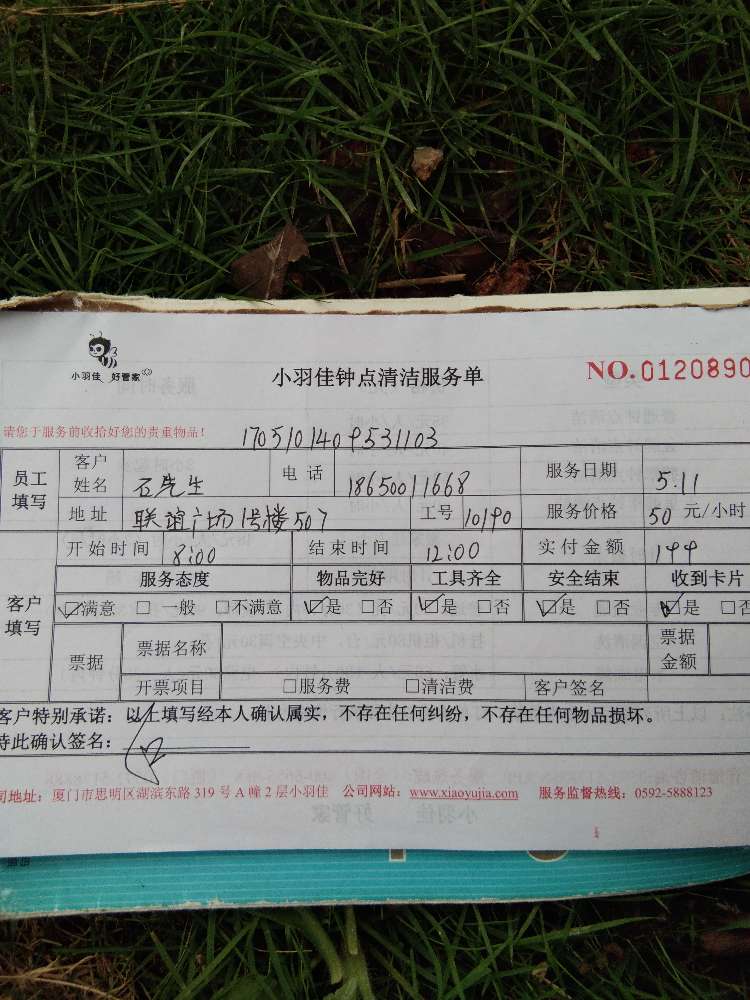 小羽佳 好管家
小羽佳钟点清洁服务单
NO.0120890
请您于服务前收拾好您的贵重物品！
1705101409531103
员工填写 客户姓名 石先生 电话 18650011668 服务日期 5.11
地址 联谊广场1号楼507 工号 10190 服务价格 50 元/小时
客户填写 开始时间 8:00 结束时间 12:00 实付金额 199
服务态度 物品完好 工具齐全 安全结束 收到卡片
☑满意 □一般 □不满意 ☑是 □否 ☑是 □否 ☑是 □否 ☑是 □否
票据 票据名称 票据金额
开票项目 □服务费 □清洁费 客户签名
客户特别承诺：以上填写经本人确认属实，不存在任何纠纷，不存在任何物品损坏。
特此确认签名：
司地址：厦门市思明区湖滨东路 319 号 A 幢 2 层小羽佳 公司网站：www.xiaoyujia.com 服务监督热线：0592-5888123